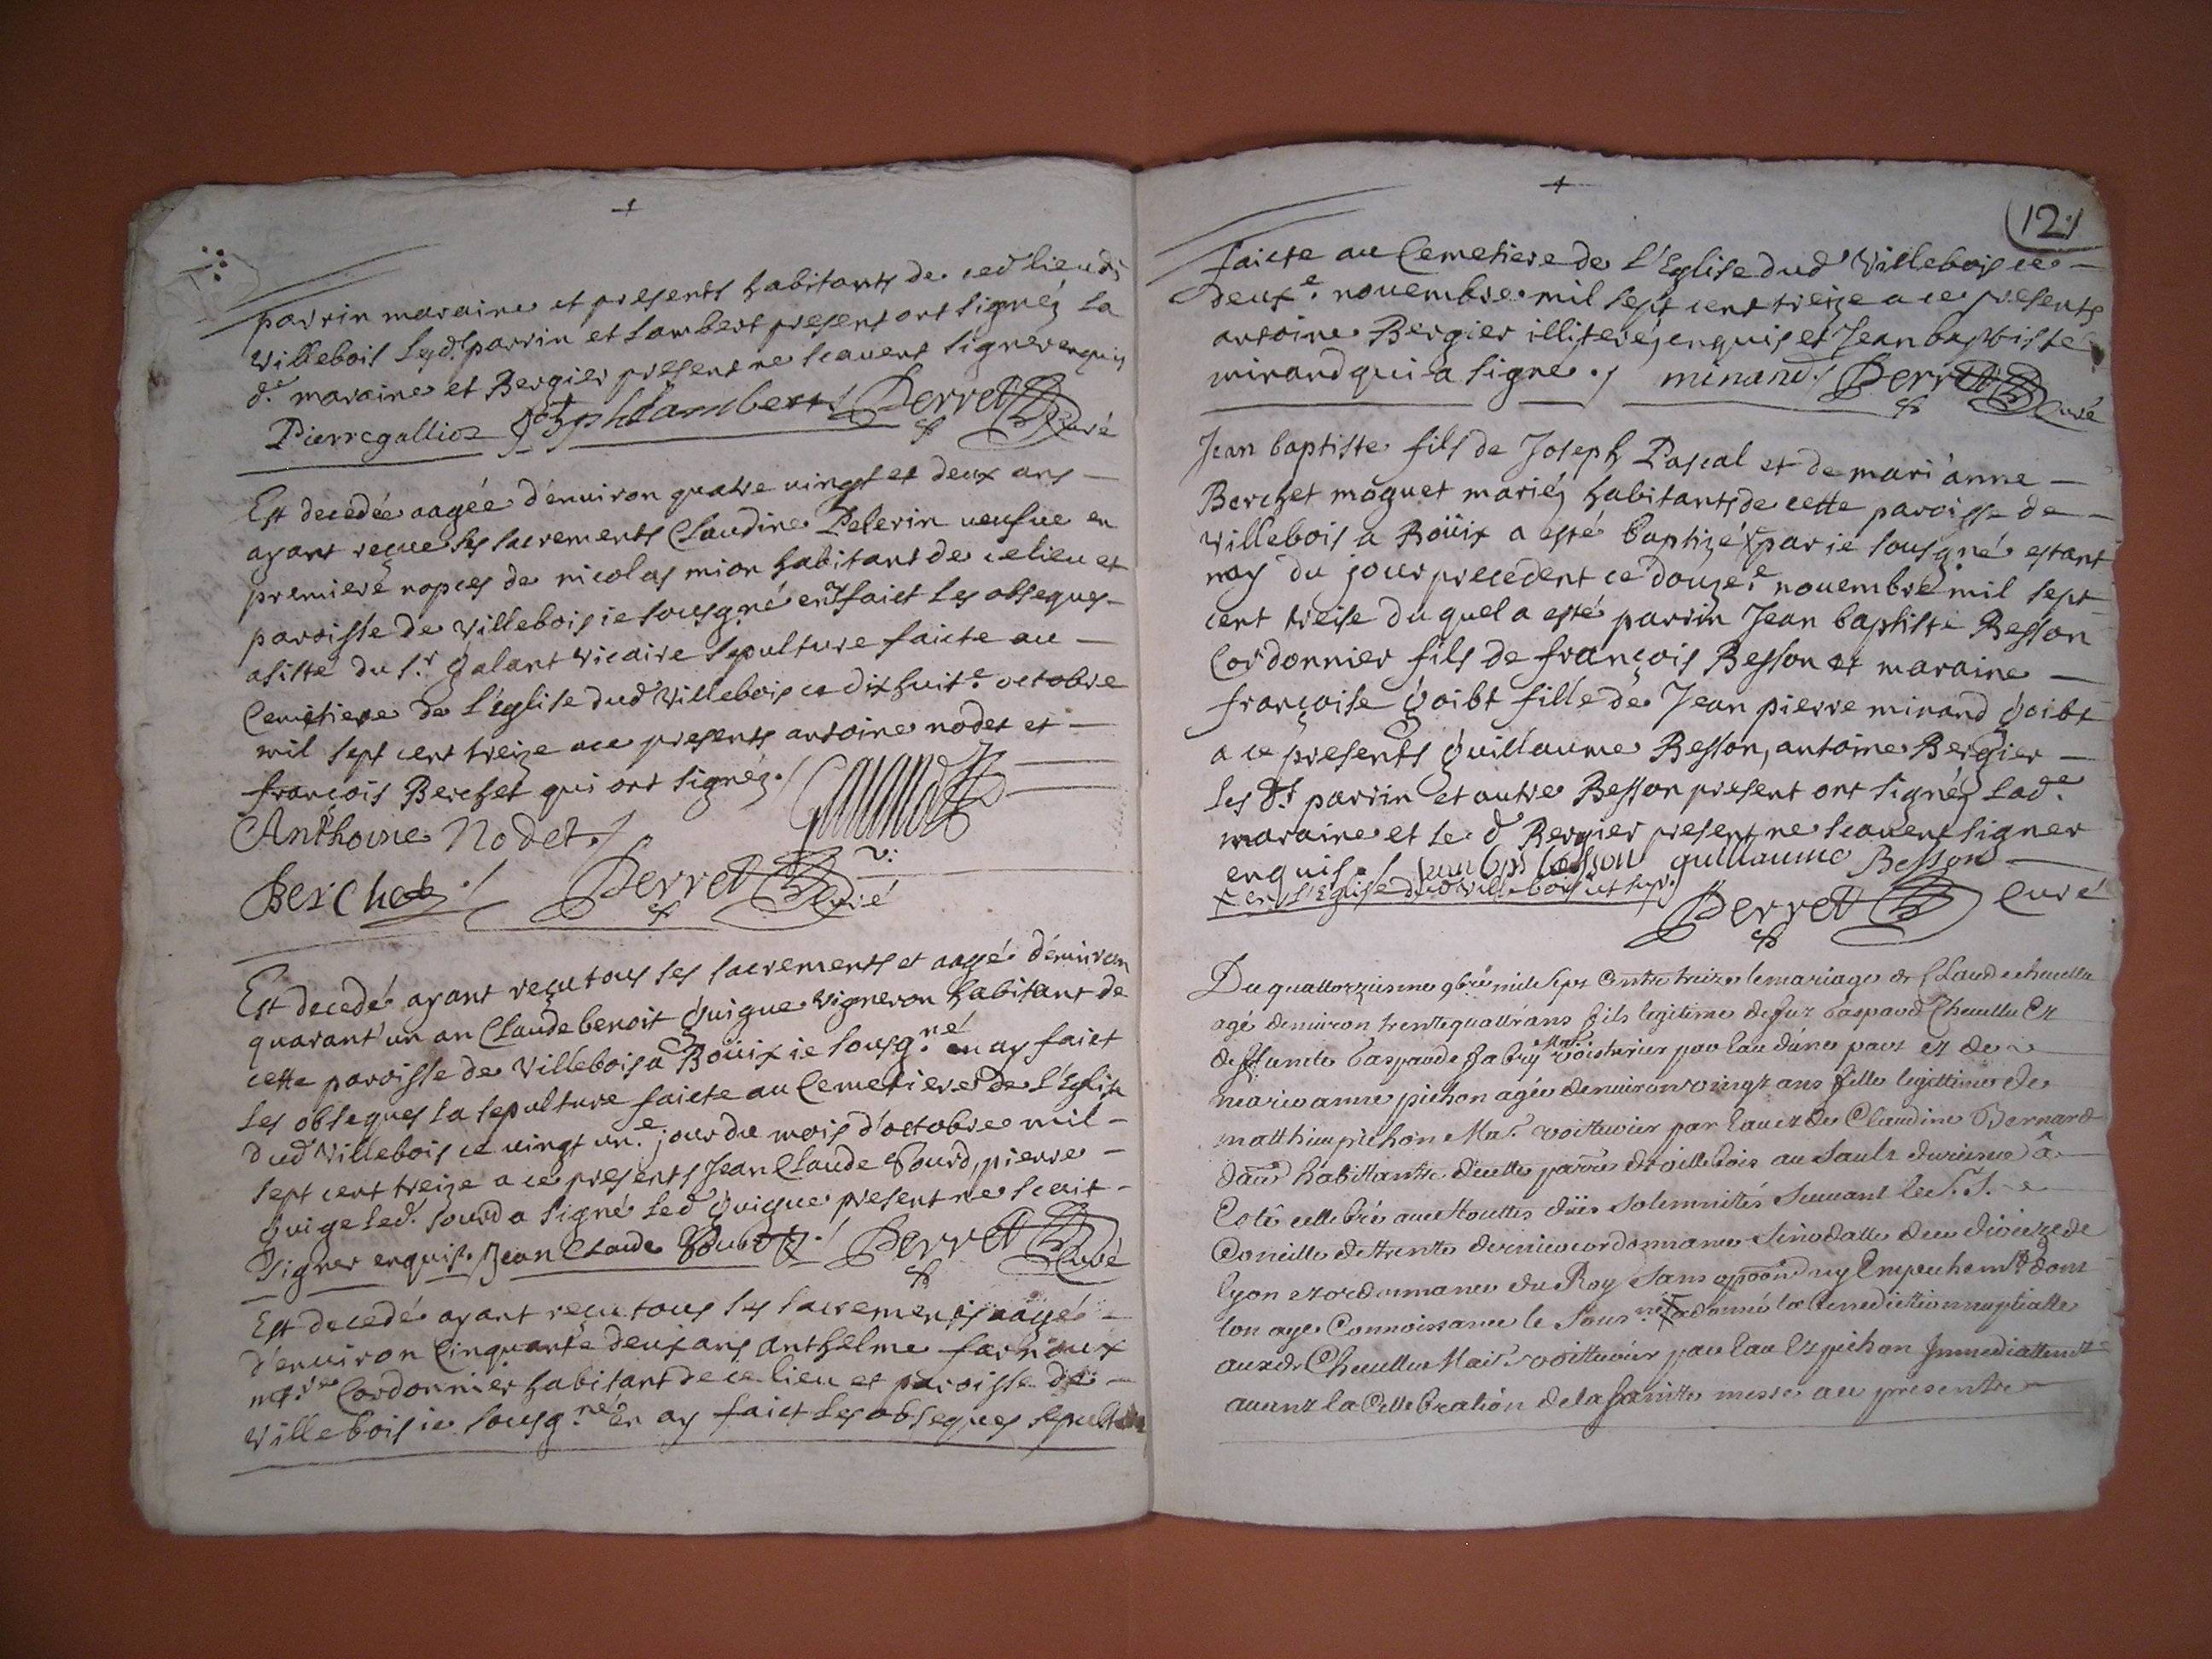 parrin maraine et presents habitants de ced.' lieu dt
Villebois lesd. parrin et Lambert present ont signéz la
d.e maraine et Bergier present ne scavent signer enquis
Pierregallioz Joseph Lambert Perret Curé
Est decedée aagée d'environ quatre vingt et deux ans
ayant reçue les sacrements Claudine Pelerin veufve en
premiere nopces de nicolas mion habitant de ce lieu et
paroisse de Villebois ie sousgné en ay faict les obseques
asisté du s.r Galant vicaire sepulture faicte au
Cemetiere de l'église dud.' Villebois ce dix huit.e octobre
mil sept cent treize a ce presents antoine nodet et
françois Berchet qui ont signéz ./
Anthoine Nodet ./
Berchet ./ Perret Curé v:
Est decedé ayant reçu tous les sacrements et aagé d'environ
quarant'un an Claude benoit Guigue Vigneron habitant de
cette paroisse de Villebois a Boüix ie sousg.né en ay faict
les obseques la sepulture faicte au Cemetiere de L'Eglise
dud Villebois ce vingt un.e jour du mois d'octobre mil
sept cent treize a ce presents Jean Claude Sourd, pierre
Guige led. sourd a signé led Guigue present ne scait
signer enquis. Jean Claude Perret Curé
Est decedé ayant reçu tous les sacrements aagé
d'environ Cinquante deux ans anthelme
m.tre Cordonnier habitant de ce lieu et paroisse de
Villebois ie sousg.né En ay faict les obseques sepulture
12
faicte au Cemetiere de L'Eglise dud Villebois ce
deux.e novembre mil sept cent treize a ce presents
antoine Bergier illiteréz enquis et Jean baptiste
minand qui a signé ./ minand ./ Perret Curé
Jean baptiste fils de Joseph Pascal et de mari'anne
Berchet moguet mariéz habitants de cette paroisse de
Villebois a Boüix a esté baptizé x par ie sousgné estant
nay du jour precedent ce douze.e novembre mil sept
cent treise du quel a esté parrin Jean baptiste Besson
Cordonnier fils de françois Besson et maraine
françoise Goibt fille de Jean pierre minand Goibt
a ce presents Guillaume Besson, antoine Bergier
les d.ts parrin et autre Besson present ont signéz lad.e
maraine et le d Bergier present ne scavent signer
enquis ./ Jean bpt besson guillaume Besson
x en L'Eglise dud villebois ut supr.
Perret Curé
Du quattorzieme 9bre mil sept Centz treize le mariage de Claude chevellu
agé denviron trente quattr'ans fils legitime de fut Gaspard Chevellu Et
de Gasparde fabry Mai.s voisturier par Eau d'une part et de
marie anne pichon agée denviron vingt ans fille legittime de
matthieu pichon Ma.s voitturier par Eau et de Claudine Bernard
habittants de cette parre de villebois au Sault a
Esté cellebré avec touttes solemnittés suivant le S.S.
Concille de trente ordonnances sinodalle du dioceze de
Lyon et ordonnance du Roy sans ny Empechem.t dont
lon aye Connoissance le sous.né a donné la Benediction nuptialle
aux d. Chevellu Mai.s voitturier par Eau Et pichon Immediattem.t
avant la Cellebration de la sainte messe au presente